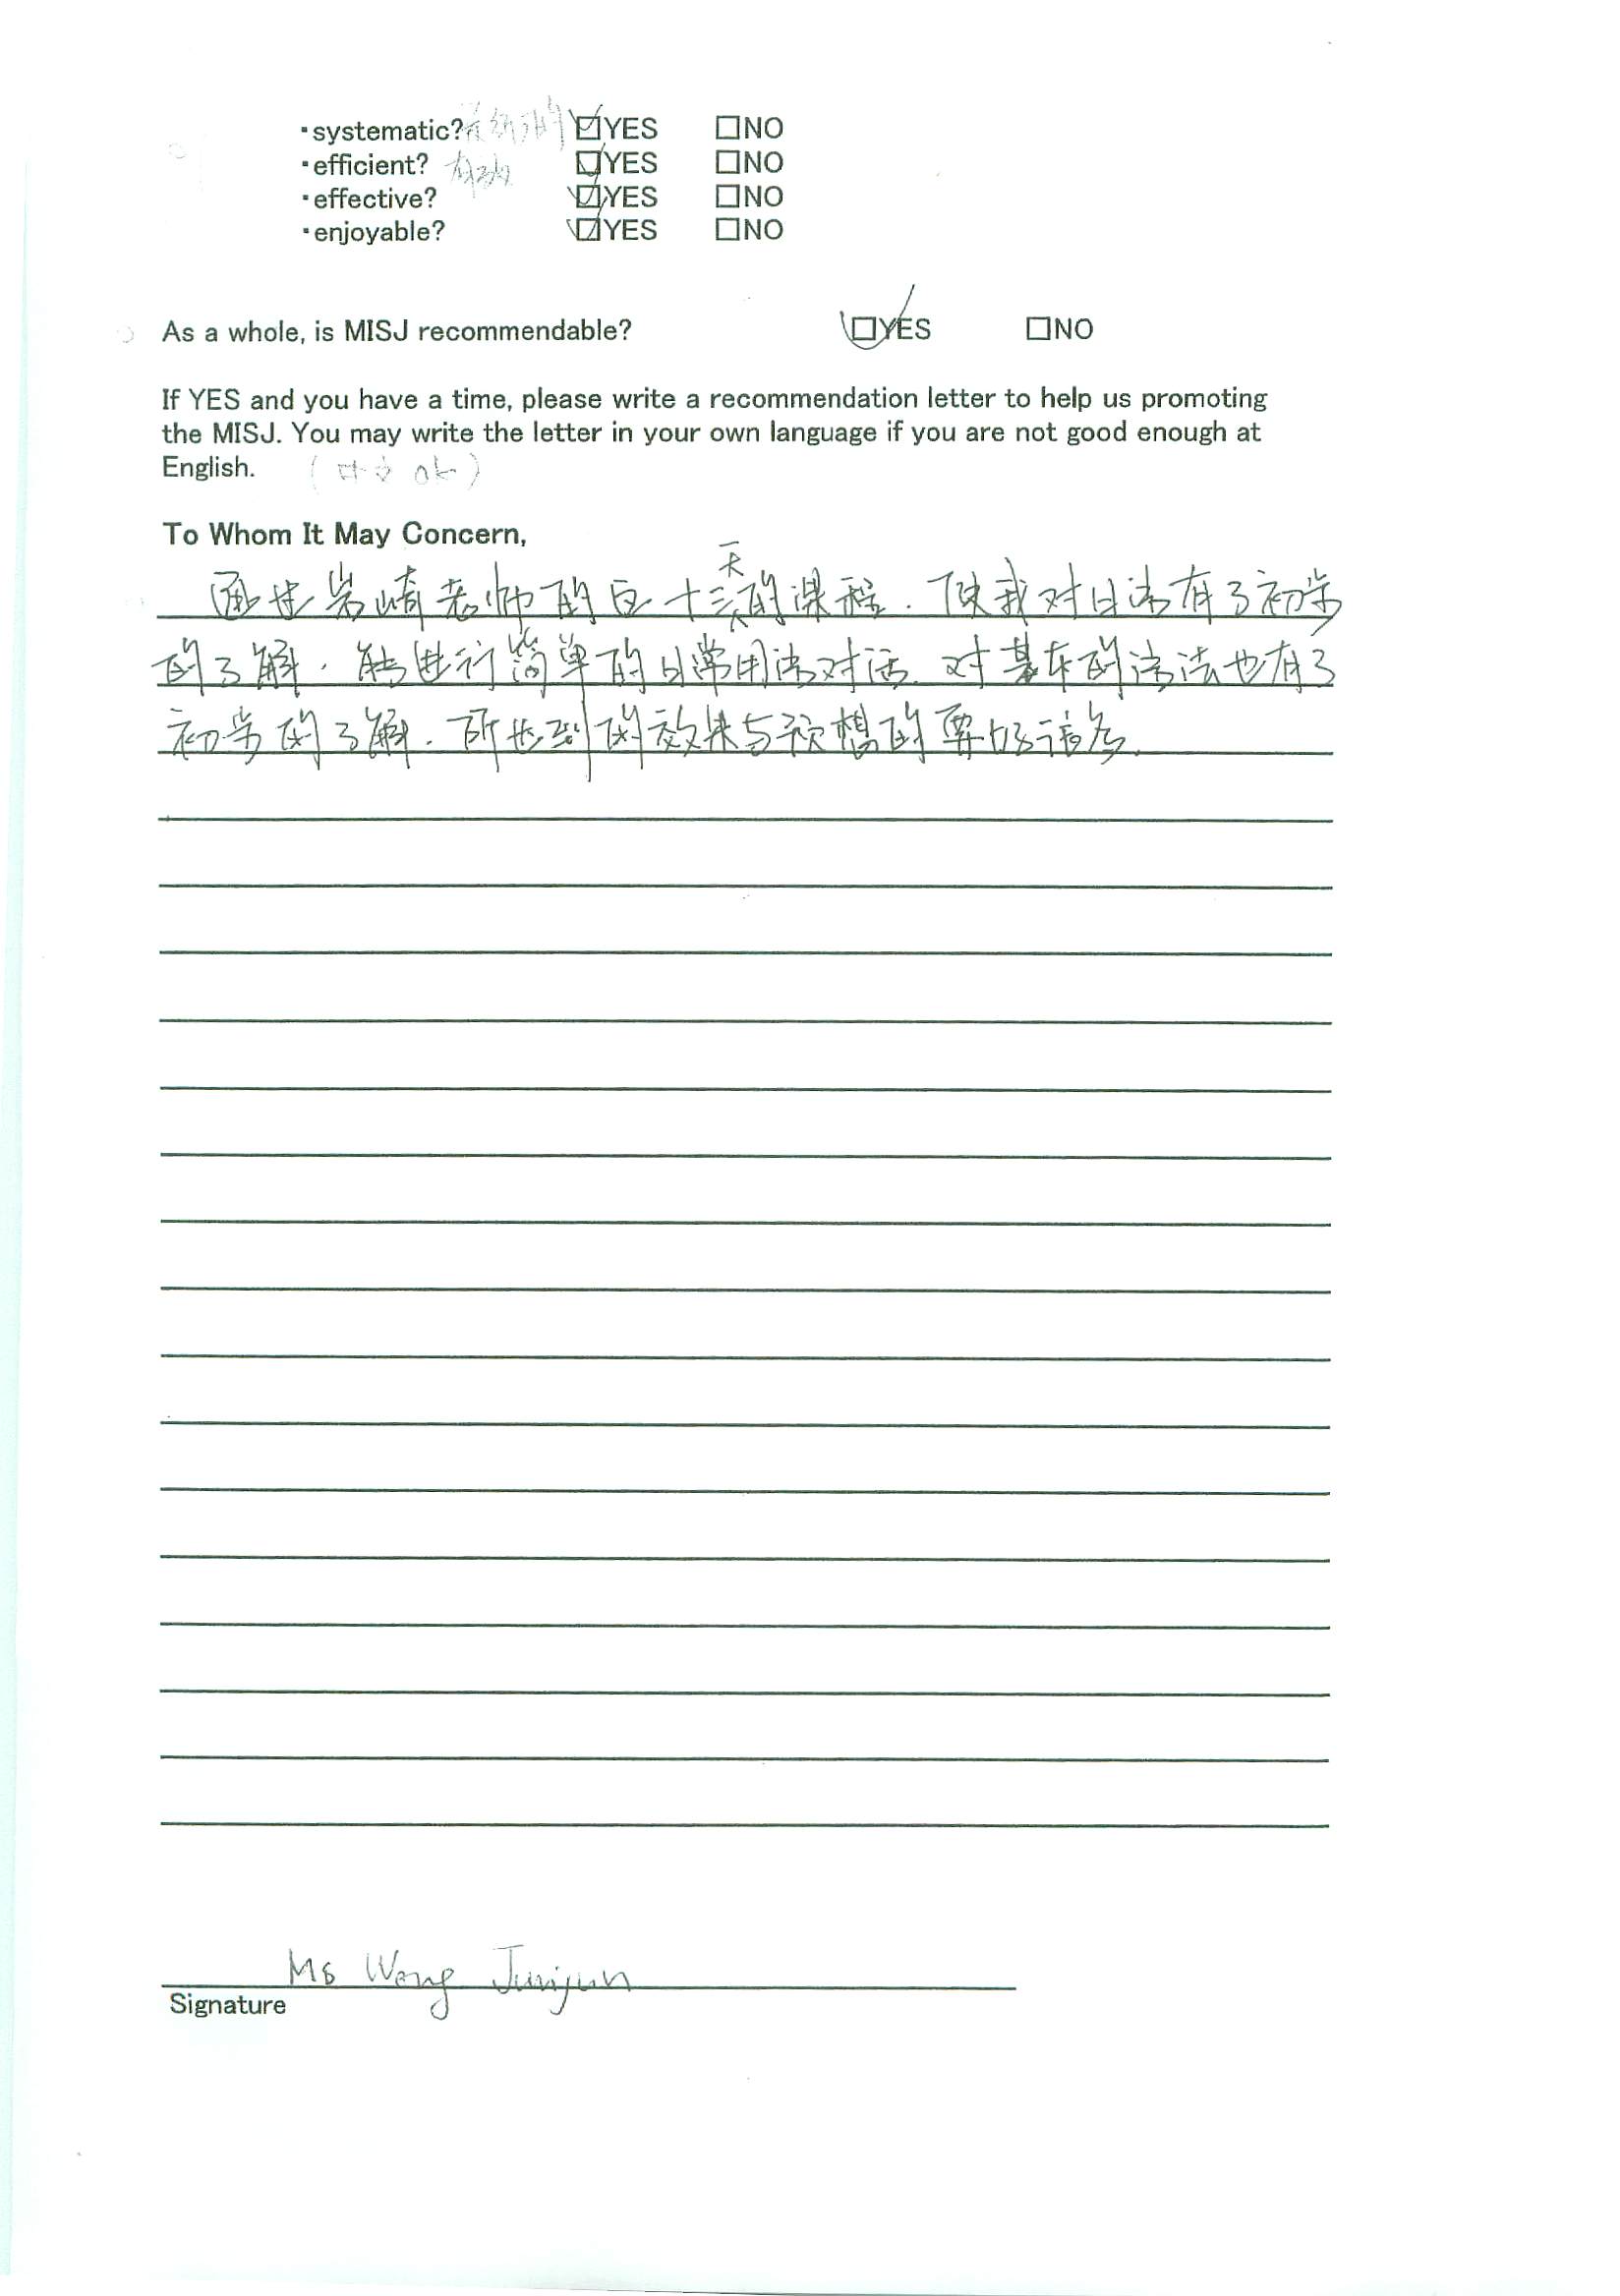 ・systematic? ☑YES □NO
・efficient? 有效的 ☑YES □NO
・effective? ☑YES □NO
・enjoyable? ☑YES □NO
As a whole, is MISJ recommendable? ☑YES □NO
If YES and you have a time, please write a recommendation letter to help us promoting
the MISJ. You may write the letter in your own language if you are not good enough at
English. (中文 ok)
To Whom It May Concern,
通过岩崎老师的 十三天的课程. 使我对日语有了初步
的了解. 能进行简单的日常用语对话. 对基本的语法也有了
初步的了解. 所达到的效果与预想的要好
Ms Wang
Signature